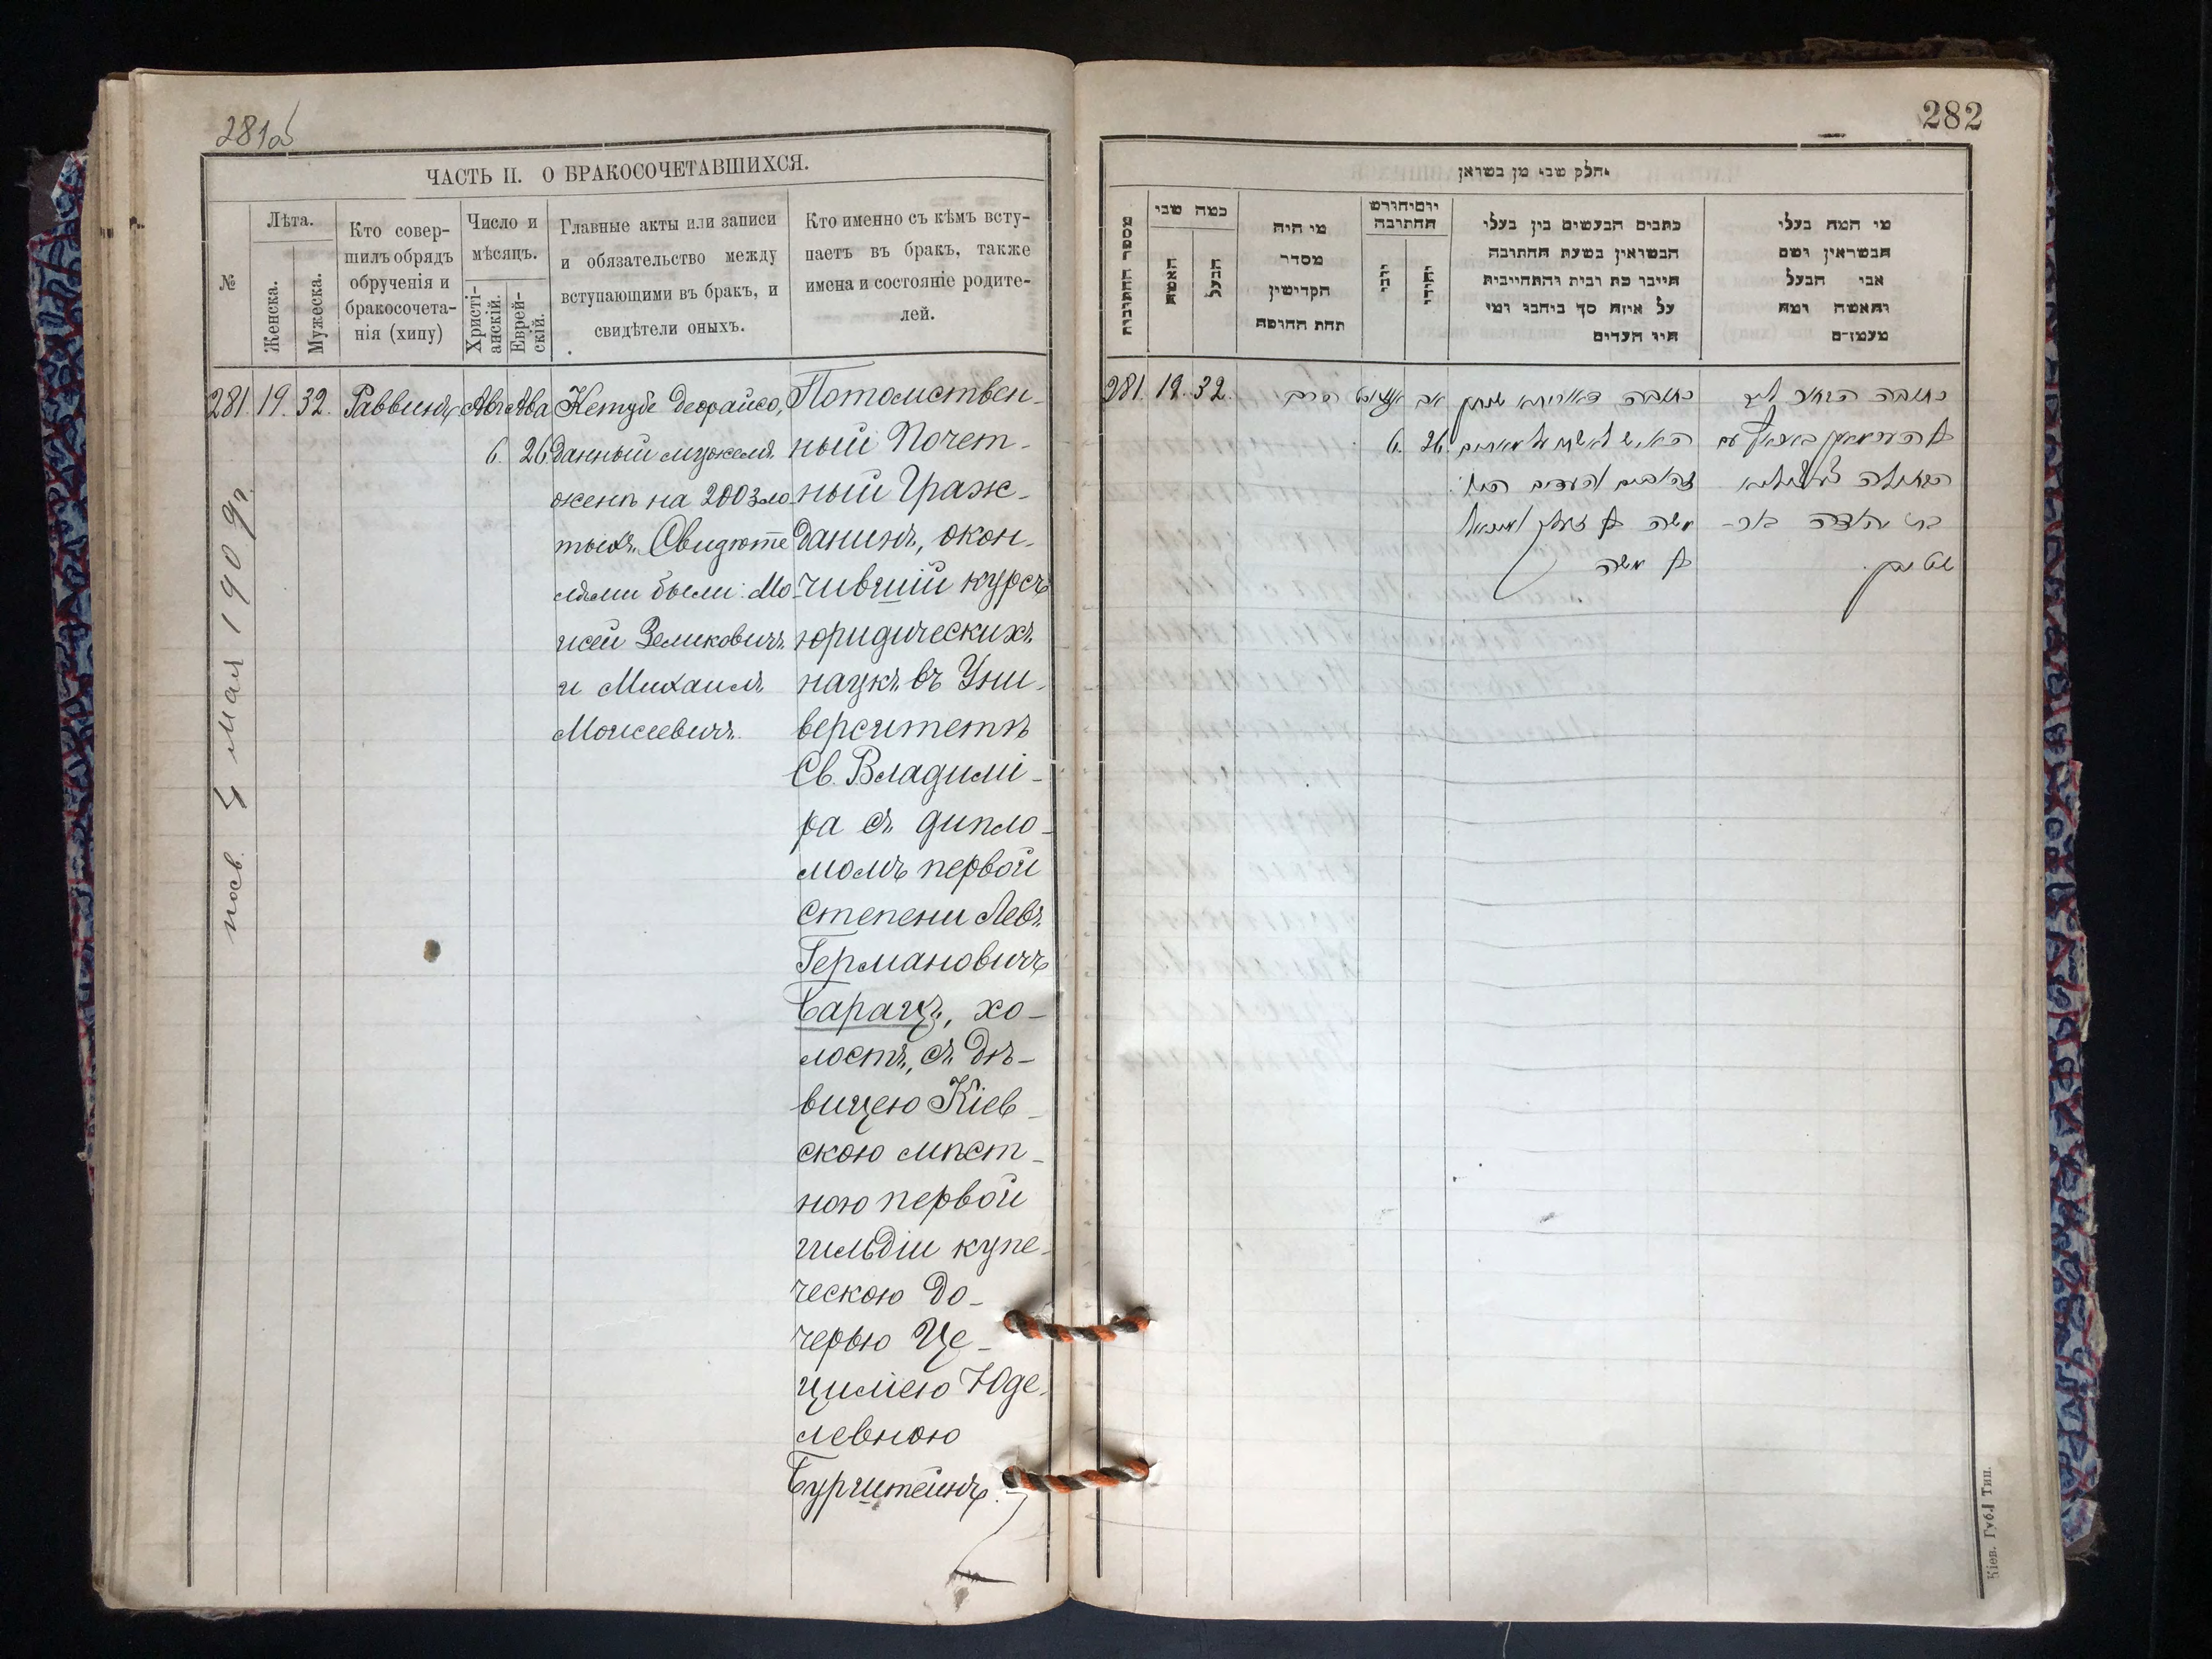 281об
ЧАСТЬ II. О БРАКОСОЧЕТАВШИХСЯ.
№
Лѣта.
Женска.
Мужеска.
Кто совер-
шилъ обрядъ
обрученія и
бракосочета-
нія (хипу)
Число и
мѣсяцъ.
Христі-
анскій.
Еврей-
скій.
Главные акты или записи
и обязательство между
вступающими въ бракъ, и
свидѣтели оныхъ.
Кто именно съ кѣмъ всту-
паетъ въ бракъ, также
имена и состояніе родите-
лей.
281. 19. 32. Раввинъ Авг. Ава
6. 26.
Кетубе деорайсо,
данный мужемъ
женѣ на 200 зло-
тыхъ. Свидѣте
лями были: Мо-
исей Зеликовичъ
и Михаилъ
Моисеевичъ.
Потомствен-
ный Почет-
ный Граж-
данинъ, окон-
чившій курсъ
юридическихъ
наукъ въ Уни-
верситетѣ
Св. Владимі-
ра съ дипло-
момъ первой
степени Левъ
Германовичъ
Барацъ, хо-
лостъ, съ дѣ-
вицею Кіев-
скою мѣст-
ною первой
гильдіи купе-
ческою до-
черью Це-
циліею Юде-
левною
Бурштейнъ.
4 мая 1909 г.
282
חלק שני מן נשואין
מספר החתונות
כמה שני
האשה
הבעל
מי היה
מסדר
הקדישין
תחת החופה
יום וחודש
החתונה
כתבים הנעשים בין בעלי
הנשואין בשעת החתונה
על איזה סך
היו העדים
מי המה בעלי
הנשואין ושם
אבי הבעל
והאשה ומה
מעמדם
281. 19. 32. הרב אויגוסט אב
6. 26.
כתובה דאורייתא שנתן
האיש לאשתו על מאתים
זהובים והעדים היו:
משה
משה
כתובה הבחור
הבתולה
בת יהודה
Кіев. Губ. Тип.